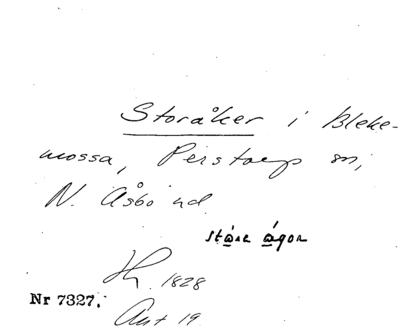 Storåker i Bleke-
mossa, Perstorp sn,
N. Åsbo hd
stårа ågor
1828
Nr 7327.
Aut 19